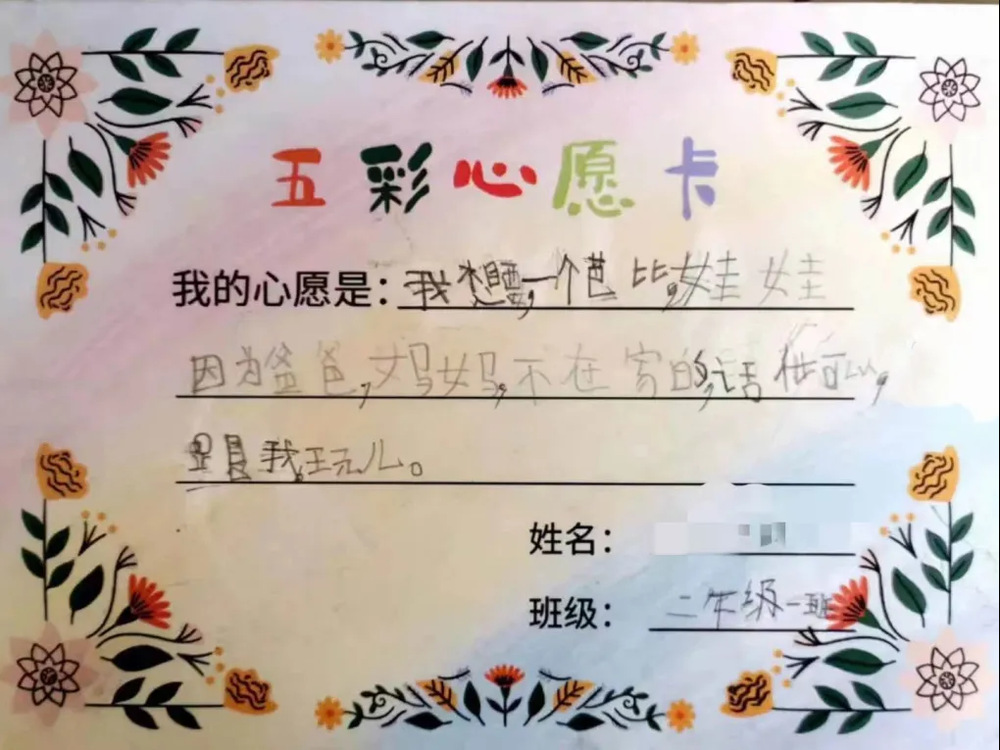 五彩心愿卡
我的心愿是：我想要一个芭比娃娃
因为爸爸,妈妈不在家的话他可以,
跟我玩儿。
姓名：
班级：二年级一班